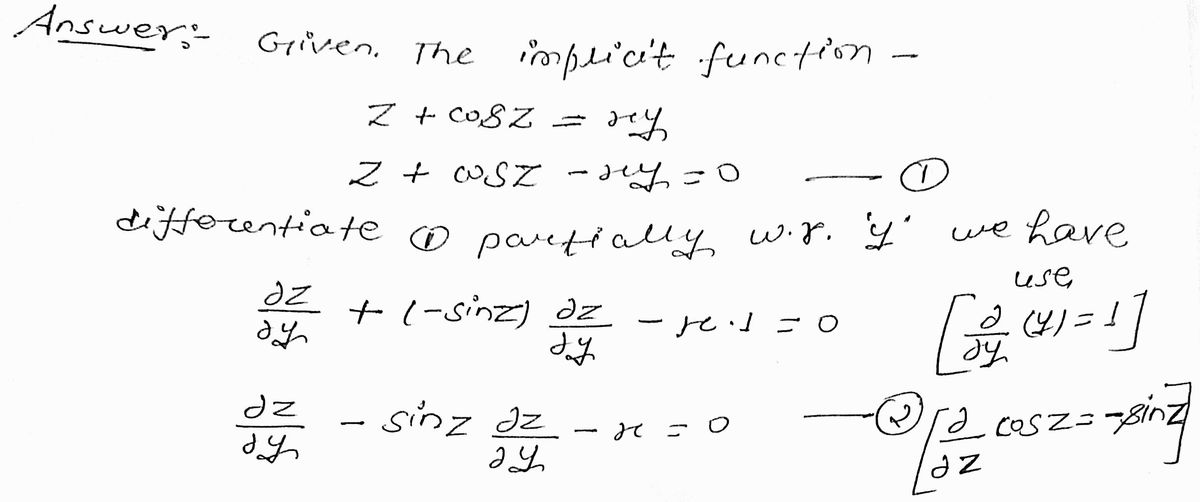 Answer:- Given. The implicit function -
z + cosz = xy
z + cosz - xy = 0 —①
differentiate ① partially w.r. 'y' we have
∂z/∂y + (-sinz) ∂z/∂y - x.1 = 0 use, [∂/∂y (y) = 1]
∂z/∂y - sinz ∂z/∂y - x = 0 —② [∂/∂z cosz = -sinz]